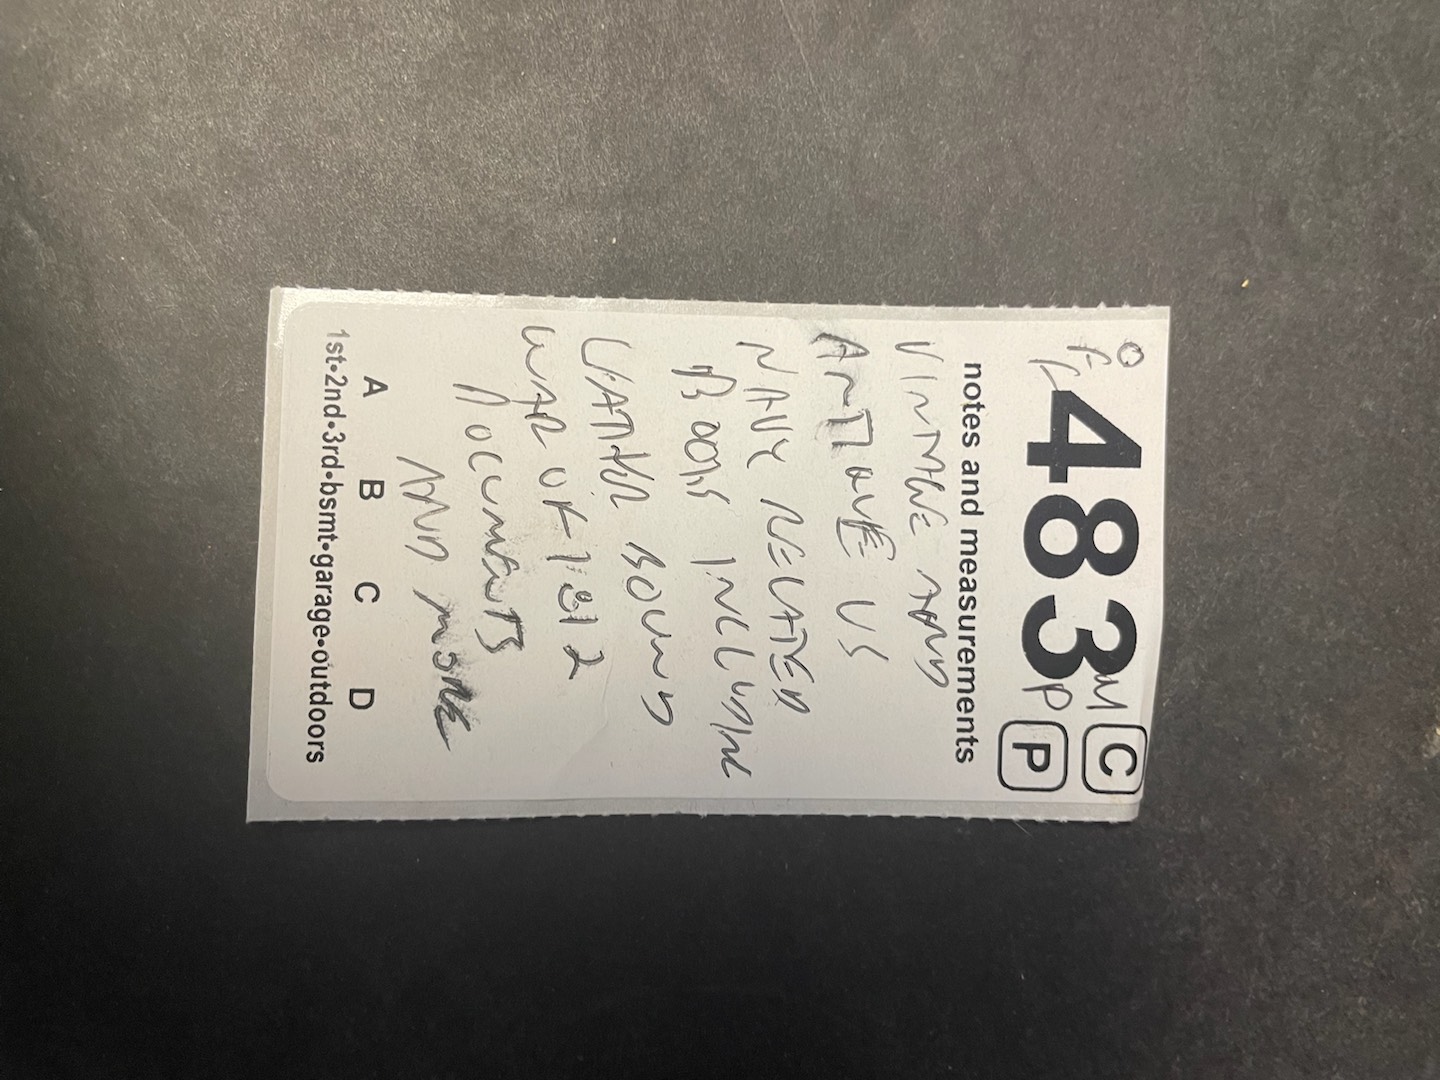 O 483 M C
FL P P
notes and measurements
VINTAGE AND
ANTIQUE US
NAVY RELATED
BOOKS INCLUDING
LEATHER BOUND
WAR OF 1812
DOCUMENTS
AND MORE
A B C D
1st•2nd•3rd•bsmt•garage•outdoors